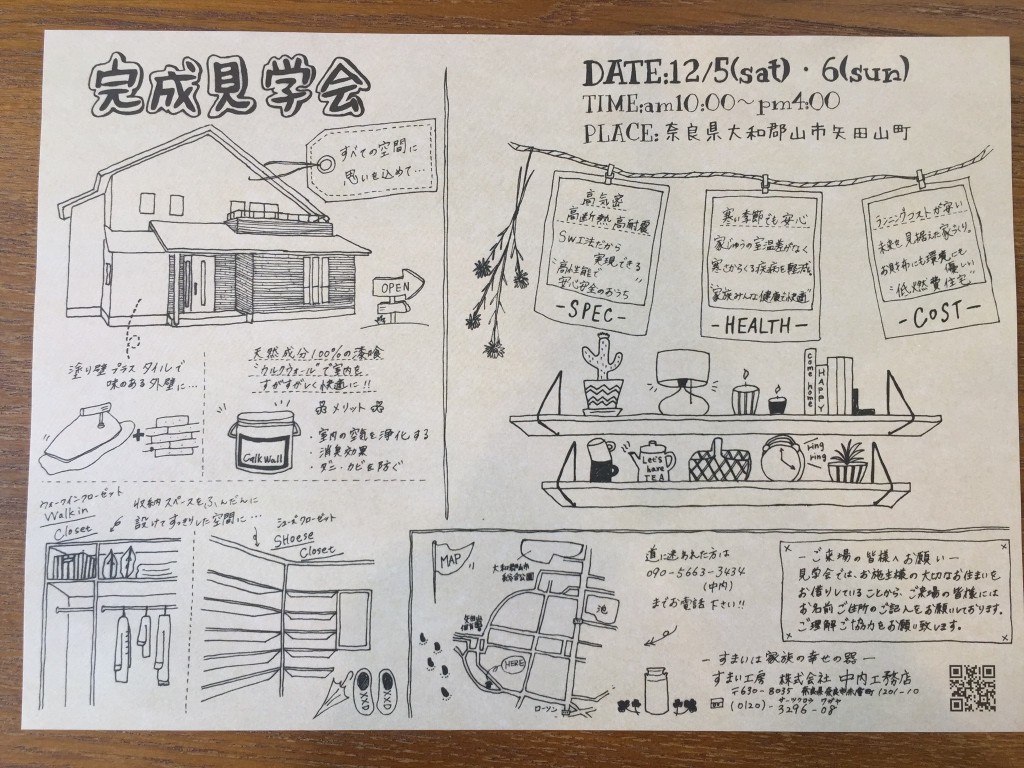 完成見学会
すべての空間に
思いを込めて…
OPEN
塗り壁プラスタイルで
味のある外壁に…
天然成分100%の漆喰
"カルクウォール"で室内を
すがすがしく快適に!!
メリット
・室内の空気を浄化する
・消臭効果
・ダニ・カビを防ぐ
Calk Wall
ウォークインクローゼット
Walk in
Closet
収納スペースをふんだんに
設けてすっきりした空間に…
シューズクローゼット
SHoese
Closet
DATE:12/5(sat)・6(sun)
TIME:am10:00~pm4:00
PLACE:奈良県大和郡山市矢田山町
高気密
高断熱 高耐震
SW工法だから
実現できる
"高性能で
安心安全のおうち"
-SPEC-
寒い季節でも安心
家じゅうの室温差がなく
寒さからくる疾病を軽減。
"家族みんな健康で快適"
-HEALTH-
ランニングコストが安い
未来を見据えた家づくり。
お財布にも環境にも
優しい
"低燃費住宅"
-COST-
Come home
HAPPY
Let's
have
TEA
ring
ring
MAP
大和郡山市
池
HERE
ローソン
道に迷われた方は
090-5663-3434
(中内)
までお電話下さい!!
-ご来場の皆様へお願い-
見学会では、お施主様の大切なお住まいを
お借りしていることから、ご来場の皆様には
お名前ご住所のご記入をお願いしております。
ご理解ご協力をお願い致します。
-すまいは家族の幸せの器-
すまい工房 株式会社 中内工務店
〒630-8035
(0120)-3296-08